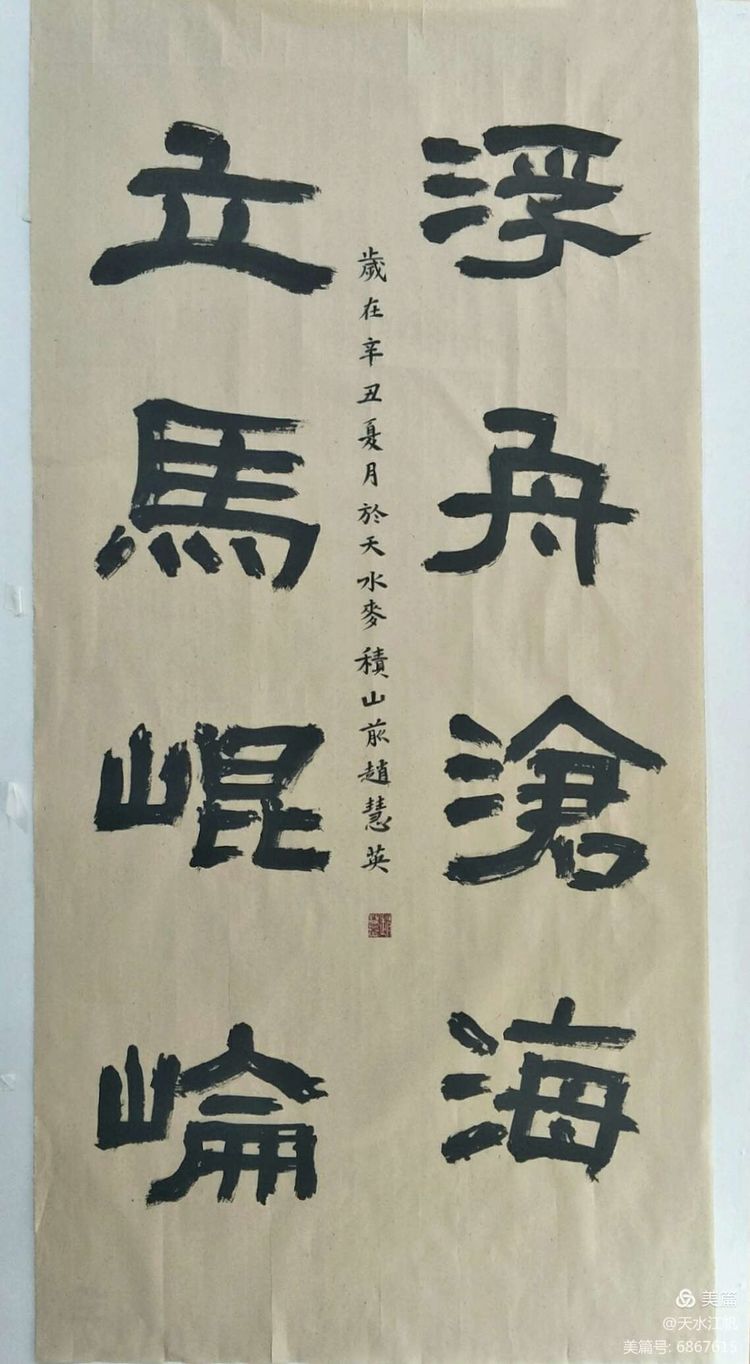 浮舟滄海
立馬崐崘
歲在辛丑夏月於天水麥積山前趙慧英
美篇
@天水江帆
美篇号: 6867615